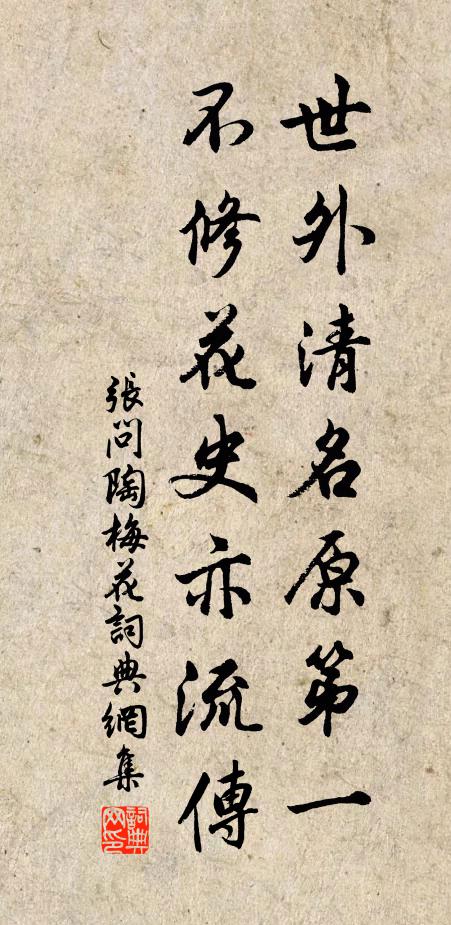 世外清名原第一
不修花史亦流傳
張問陶梅花詞典網集
詞典網印